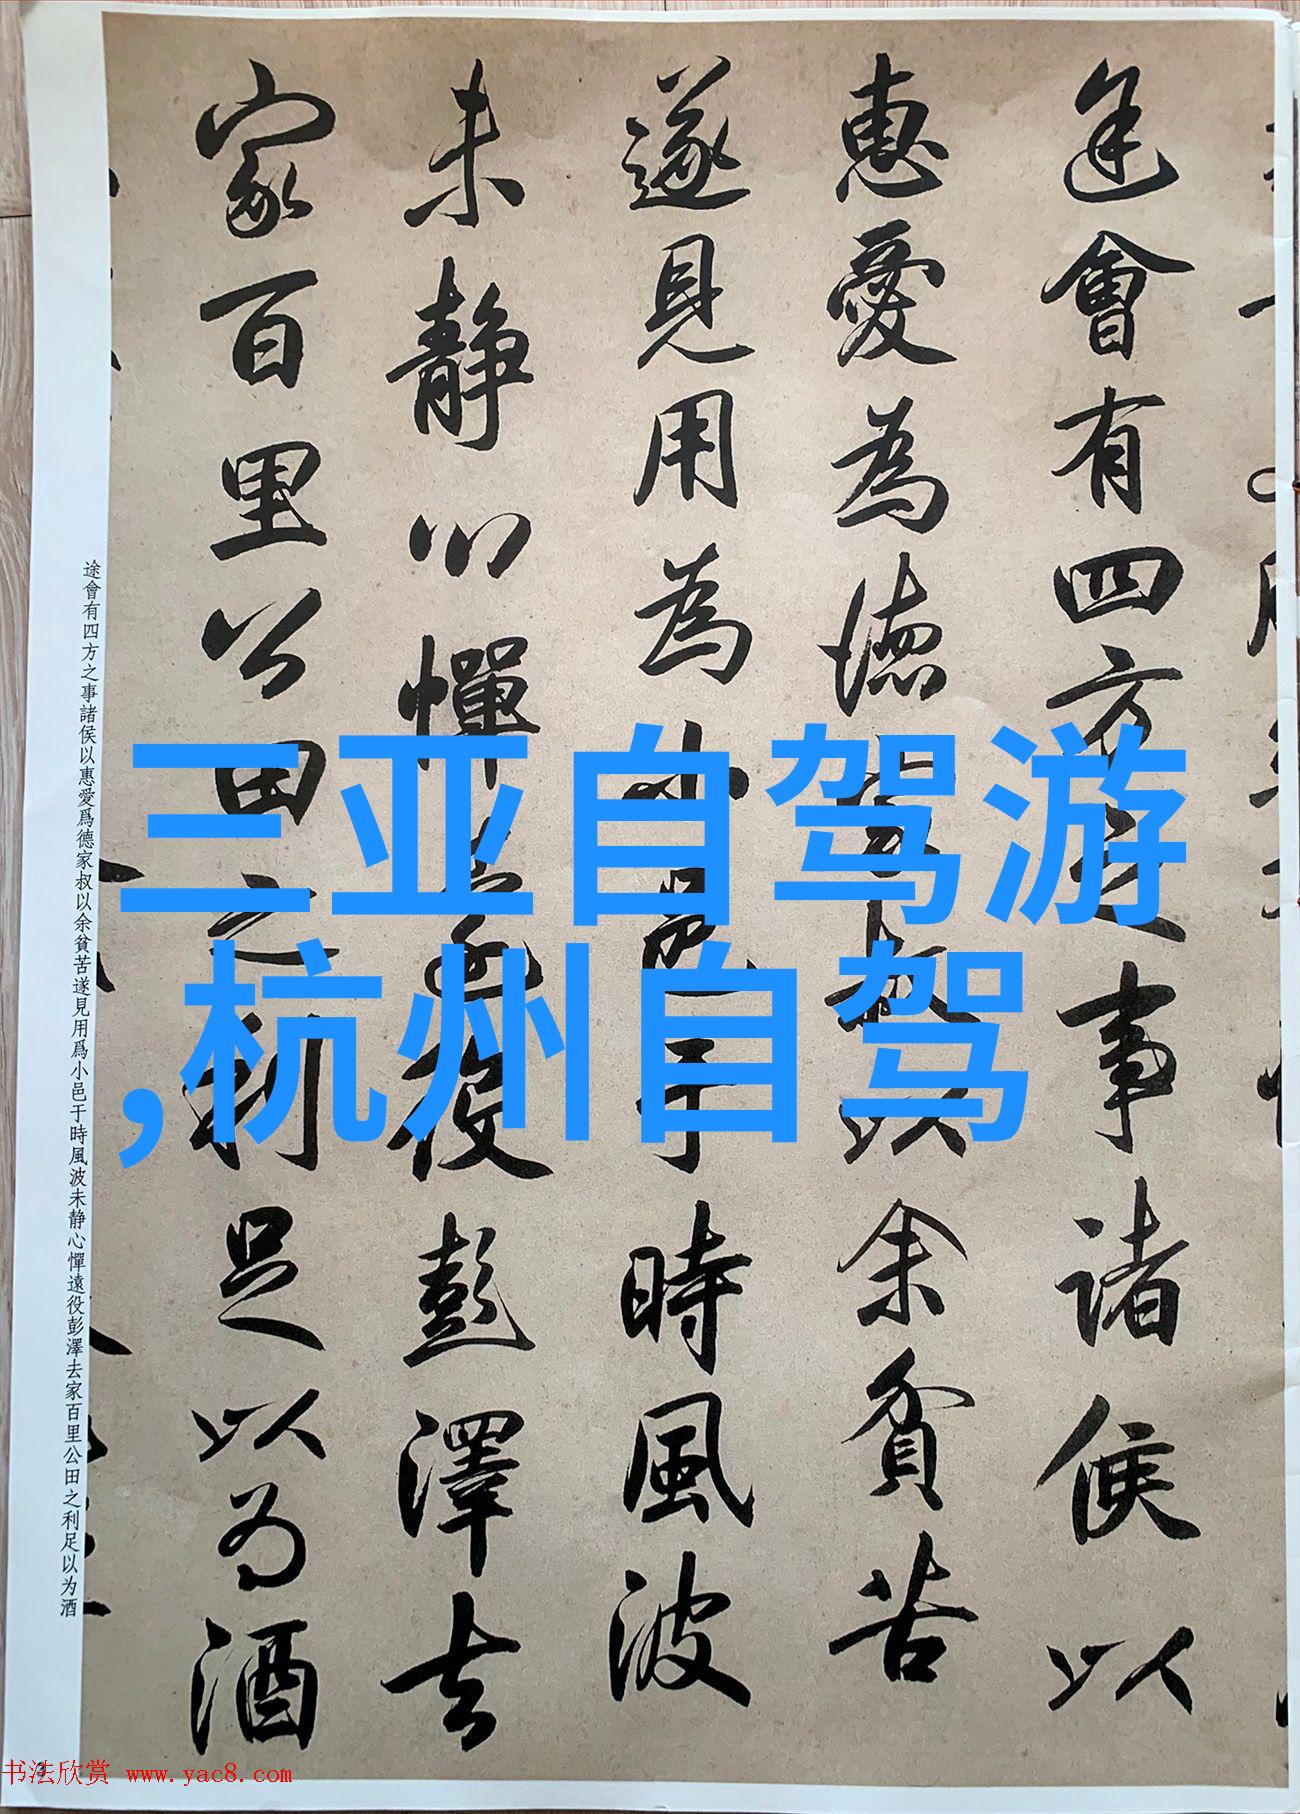 途會有四方之事諸侯以
惠愛為德家叔以余貧苦
遂見用為小邑于時風波
未靜心憚遠役彭澤去
家百里公田之利足以為酒
途會有四方之事諸侯以惠愛爲德家叔以余貧苦遂見用爲小邑于時風波未静心憚遠役彭澤去家百里公田之利足以为酒
三亚自驾游
,杭州自驾
书法欣赏 www.yac8.com